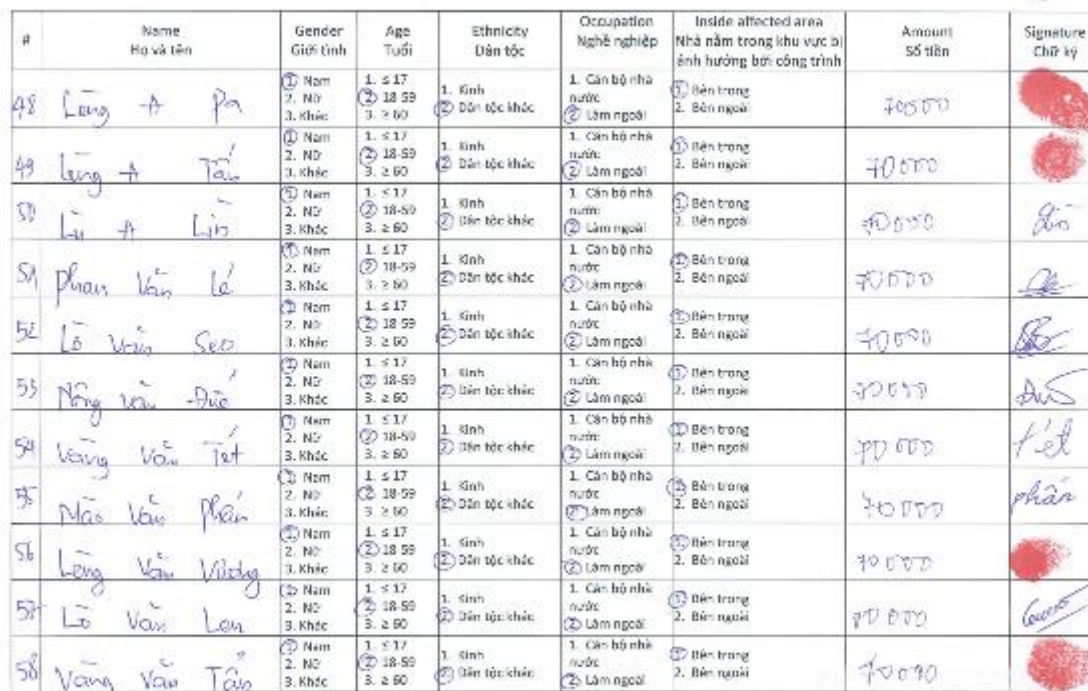 # Name Gender Age Ethnicity Occupation Inside affected area Amount Signature
Họ và tên Giới tính Tuổi Dân tộc Nghề nghiệp Nhà nằm trong khu vực bị ảnh hưởng bởi công trình Số tiền Chữ ký
48 Lèng A Pa 1. Nam 2. Nữ 3. Khác 1. ≤ 17 2. 18-59 3. ≥ 60 1. Kinh 2. Dân tộc khác 1. Cán bộ nhà nước 2. Làm ngoài 1. Bên trong 2. Bên ngoài 70000
49 Lèng A 1. Nam 2. Nữ 3. Khác 1. ≤ 17 2. 18-59 3. ≥ 60 1. Kinh 2. Dân tộc khác 1. Cán bộ nhà nước 2. Làm ngoài 1. Bên trong 2. Bên ngoài 70000
50 Lù A 1. Nam 2. Nữ 3. Khác 1. ≤ 17 2. 18-59 3. ≥ 60 1. Kinh 2. Dân tộc khác 1. Cán bộ nhà nước 2. Làm ngoài 1. Bên trong 2. Bên ngoài 70000
51 Phan Văn Lé 1. Nam 2. Nữ 3. Khác 1. ≤ 17 2. 18-59 3. ≥ 60 1. Kinh 2. Dân tộc khác 1. Cán bộ nhà nước 2. Làm ngoài 1. Bên trong 2. Bên ngoài 70000
52 Lồ Văn Seo 1. Nam 2. Nữ 3. Khác 1. ≤ 17 2. 18-59 3. ≥ 60 1. Kinh 2. Dân tộc khác 1. Cán bộ nhà nước 2. Làm ngoài 1. Bên trong 2. Bên ngoài 70000
53 Nông Văn 1. Nam 2. Nữ 3. Khác 1. ≤ 17 2. 18-59 3. ≥ 60 1. Kinh 2. Dân tộc khác 1. Cán bộ nhà nước 2. Làm ngoài 1. Bên trong 2. Bên ngoài 70000
54 Vàng Văn Tét 1. Nam 2. Nữ 3. Khác 1. ≤ 17 2. 18-59 3. ≥ 60 1. Kinh 2. Dân tộc khác 1. Cán bộ nhà nước 2. Làm ngoài 1. Bên trong 2. Bên ngoài 70000 tét
55 Mào Văn Phấn 1. Nam 2. Nữ 3. Khác 1. ≤ 17 2. 18-59 3. ≥ 60 1. Kinh 2. Dân tộc khác 1. Cán bộ nhà nước 2. Làm ngoài 1. Bên trong 2. Bên ngoài 70000 phấn
56 Lèng Văn Vương 1. Nam 2. Nữ 3. Khác 1. ≤ 17 2. 18-59 3. ≥ 60 1. Kinh 2. Dân tộc khác 1. Cán bộ nhà nước 2. Làm ngoài 1. Bên trong 2. Bên ngoài 70000
57 Lồ Văn Len 1. Nam 2. Nữ 3. Khác 1. ≤ 17 2. 18-59 3. ≥ 60 1. Kinh 2. Dân tộc khác 1. Cán bộ nhà nước 2. Làm ngoài 1. Bên trong 2. Bên ngoài 70000
58 Vàng Văn 1. Nam 2. Nữ 3. Khác 1. ≤ 17 2. 18-59 3. ≥ 60 1. Kinh 2. Dân tộc khác 1. Cán bộ nhà nước 2. Làm ngoài 1. Bên trong 2. Bên ngoài 70000